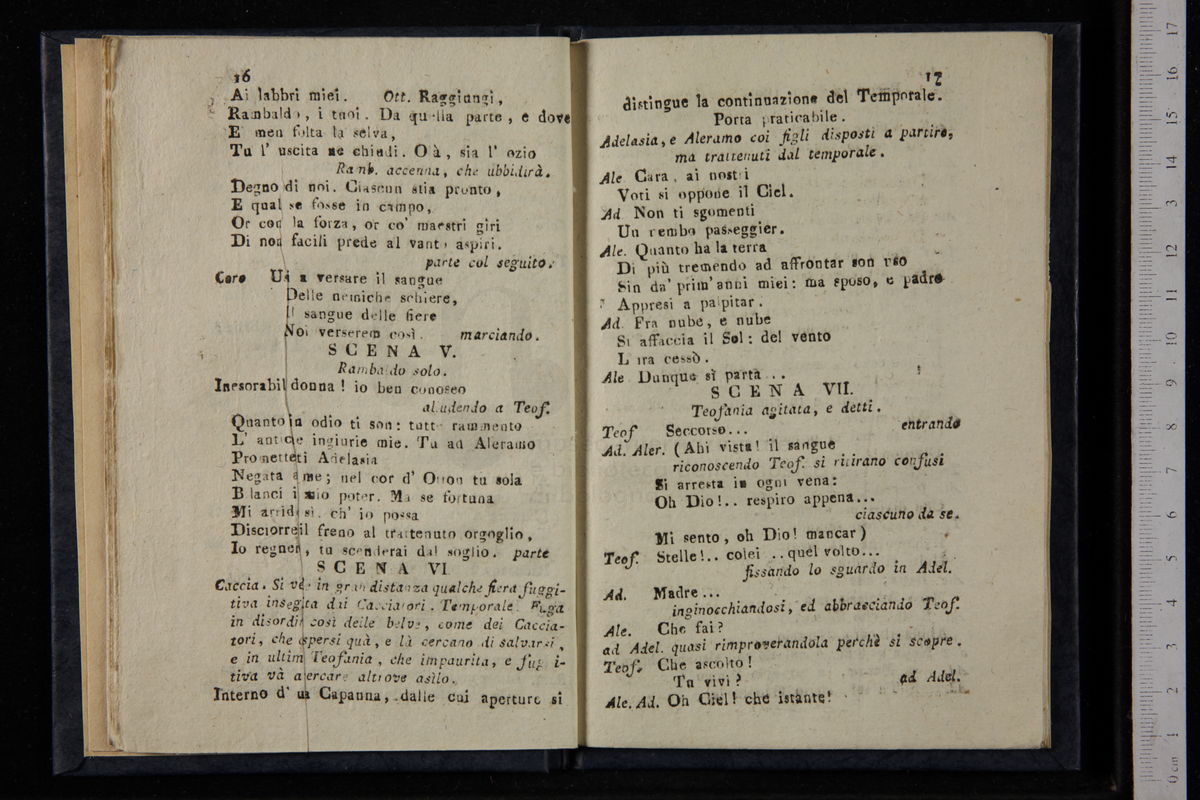 16
Ai labbri miei. Ott. Raggiungi,
Rambaldo, i tuoi. Da quella parte, e dove
E' men folta la selva,
Tu l' uscita ne chiudi. Olà, sia l' ozio
Ramb. accenna, che ubbidirà.
Degno di noi. Ciascun stia pronto,
E qual se fosse in campo,
Or con la forza, or co' maestri giri
Di non facili prede al vanto aspiri.
parte col seguito.
Coro Usi a versare il sangue
Delle nemiche schiere,
Il sangue delle fiere
Noi verserem così. marciando.
SCENA V.
Rambaldo solo.
Inesorabil donna! io ben conosco
alludendo a Teof.
Quanto in odio ti son: tutte rammento
L' antiche ingiurie mie. Tu ad Aleramo
Prometteti Adelasia
Negata a me; nel cor d' Otton tu sola
Bilanci il mio poter. Ma se fortuna
Mi arride sì, ch' io possa
Disciorre il freno al trattenuto orgoglio,
Io regnerò, tu scenderai dal soglio. parte
SCENA VI
Caccia. Si vede in gran distanza qualche fiera fuggi-
tiva inseguita dai Cacciatori. Temporale. Fuga
in disordine così delle belve, come dei Caccia-
tori, che dispersi quà, e là cercano di salvarsi,
e in ultimo Teofania, che impaurita, e fuggi-
tiva và a cercare altrove asilo.
Interno d' una Capanna, dalle cui aperture si
17
distingue la continuazione del Temporale.
Porta praticabile.
Adelasia, e Aleramo coi figli disposti a partire,
ma trattenuti dal temporale.
Ale Cara, ai nostri
Voti si oppone il Ciel.
Ad Non ti sgomenti
Un rembo passeggier.
Ale. Quanto ha la terra
Di più tremendo ad affrontar son uso
Sin da' prim' anni miei: ma sposo, e padre
Appresi a palpitar.
Ad. Fra nube, e nube
Si affaccia il Sol: del vento
L' ira cessò.
Ale Dunque si parta...
SCENA VII.
Teofania agitata, e detti.
Teof Seccorso... entrando
Ad. Aler. (Ahi vista! il sangue
riconoscendo Teof. si ritirano confusi
Si arresta in ogni vena:
Oh Dio!.. respiro appena...
ciascuno da se.
Mi sento, oh Dio! mancar)
Teof. Stelle!.. colei ..quel volto...
fissando lo sguardo in Adel.
Ad. Madre...
inginocchiandosi, ed abbracciando Teof.
Ale. Che fai?
ad Adel. quasi rimproverandola perchè si scopre.
Teof. Che ascolto!
Tu vivi? ad Adel.
Ale. Ad. Oh Ciel! che istante!